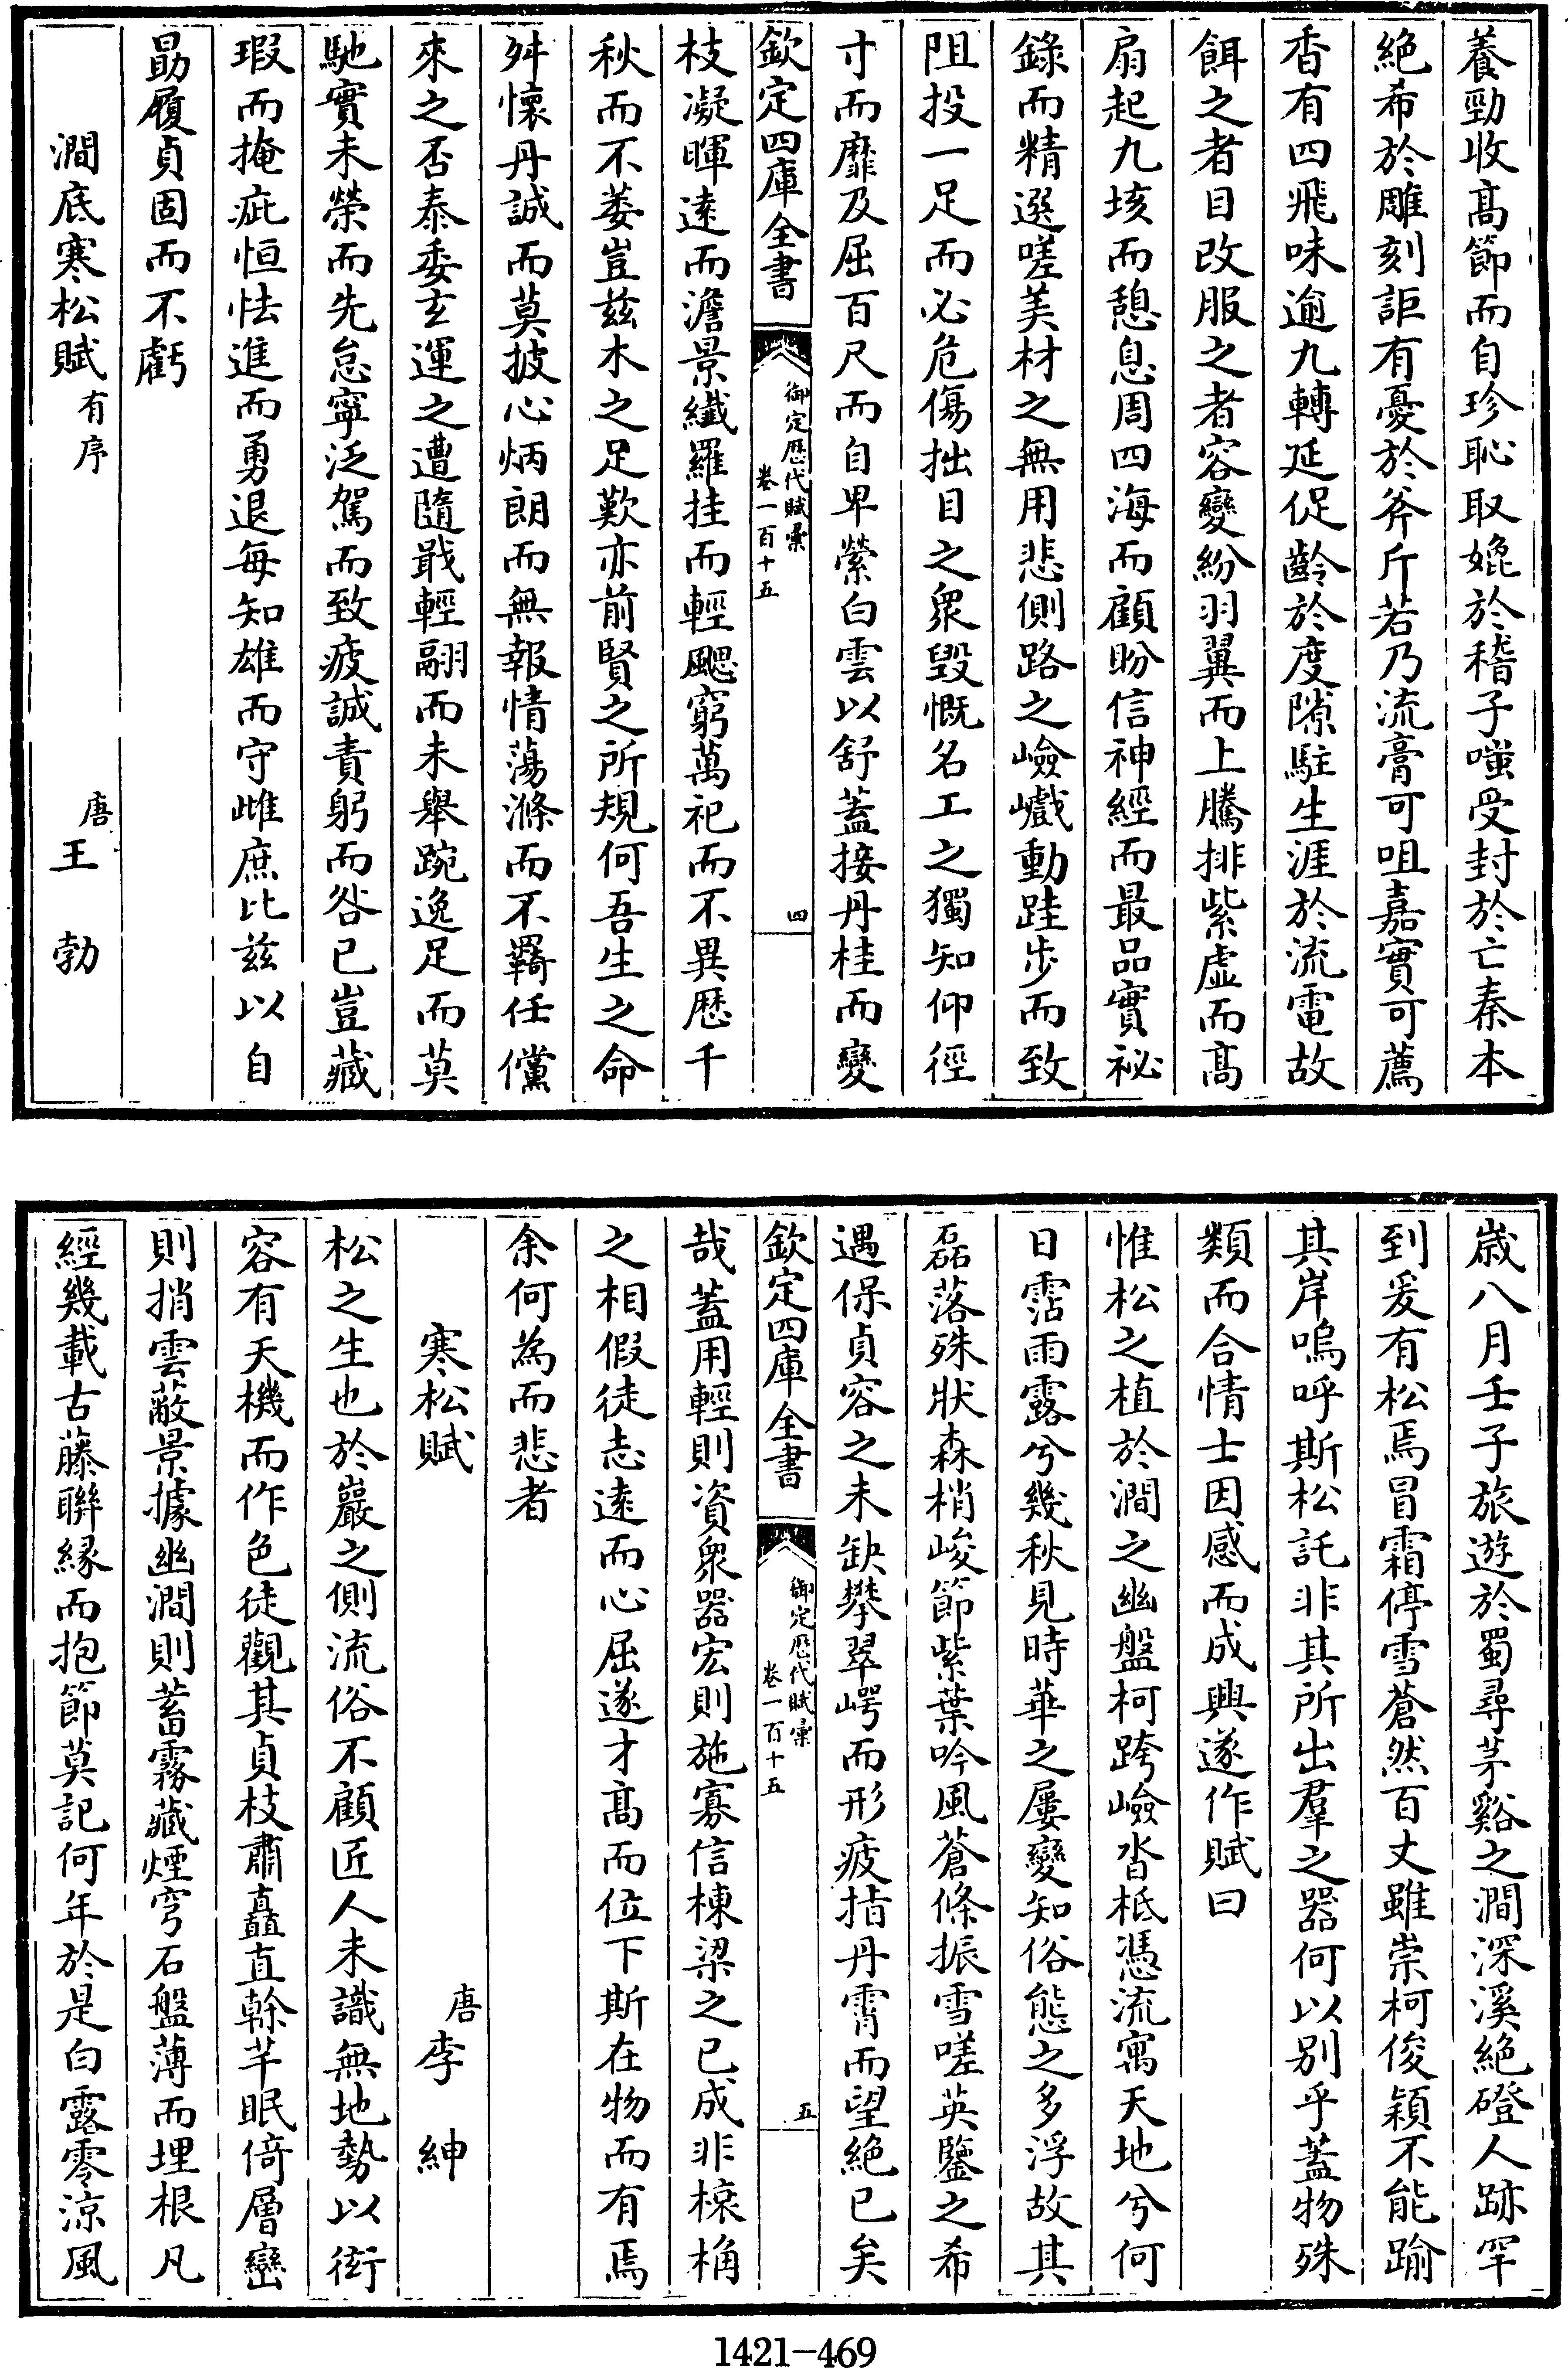 養勁收髙節而自珍恥取娩於稽子嗤受封於亡秦本
絶希於雕刻詎有憂於斧斤若乃流膏可咀嘉實可薦
香有四飛味逾九轉延促齡於度隙駐生涯於流電故
餌之者目改服之者容變紛羽翼而上騰排紫虛而髙
扇起九垓而憩息周四海而顧盼信神經而最品實祕
錄而精選嗟美材之無用悲側路之嶮巇動跬步而致
阻投一足而必危傷拙目之衆毀慨名工之獨知仰徑
寸而靡及屈百尺而自卑縈白雲以舒蓋接丹桂而變
欽定四庫全書
御定歴代賦彚
卷一百十五
四
枝凝暉逺而澹景纎羅挂而輕颸窮萬祀而不異歴千
秋而不萎豈兹木之足歎亦前賢之所規何吾生之命
舛懷丹誠而莫披心炳朗而無報情蕩滌而不羇任儻
來之否泰委𤣥運之遭隨戢輕翮而未舉踠逸足而莫
馳實未榮而先怠寧泛駕而致疲誠責躬而咎已豈藏
瑕而掩疵恒怯進而勇退每知雄而守雌庶比兹以自
勗履貞固而不虧
澗底寒松賦有序
唐王勃
歳八月壬子旅遊於蜀尋茅谿之澗深溪絶磴人跡罕
到爰有松焉冒霜停雪蒼然百丈雖崇柯俊穎不能踰
其岸嗚呼斯松託非其所出羣之器何以别乎蓋物殊
類而合情士因感而成興遂作賦曰
惟松之植於澗之幽盤柯跨嶮沓柢憑流寓天地兮何
日霑雨露兮幾秋見時華之屢變知俗態之多浮故其
磊落殊狀森梢峻節紫葉吟風蒼條振雪嗟英鑒之希
遇保貞容之未缺攀翠崿而形疲指丹霄而望絶已矣
欽定四庫全書
御定歴代賦彚
卷一百十五
五
哉蓋用輕則資衆器宏則施寡信棟梁之已成非榱桷
之相假徒志逺而心屈遂才髙而位下斯在物而有焉
余何為而悲者
寒松賦
唐李紳
松之生也於巖之側流俗不顧匠人未識無地勢以衒
容有天機而作色徒觀其貞枝肅矗直幹芊眠倚層巒
則捎雲蔽景據幽澗則蓄霧藏煙穹石盤薄而埋根凡
經幾載古藤聯縁而抱節莫記何年於是白露零涼風
1421-469